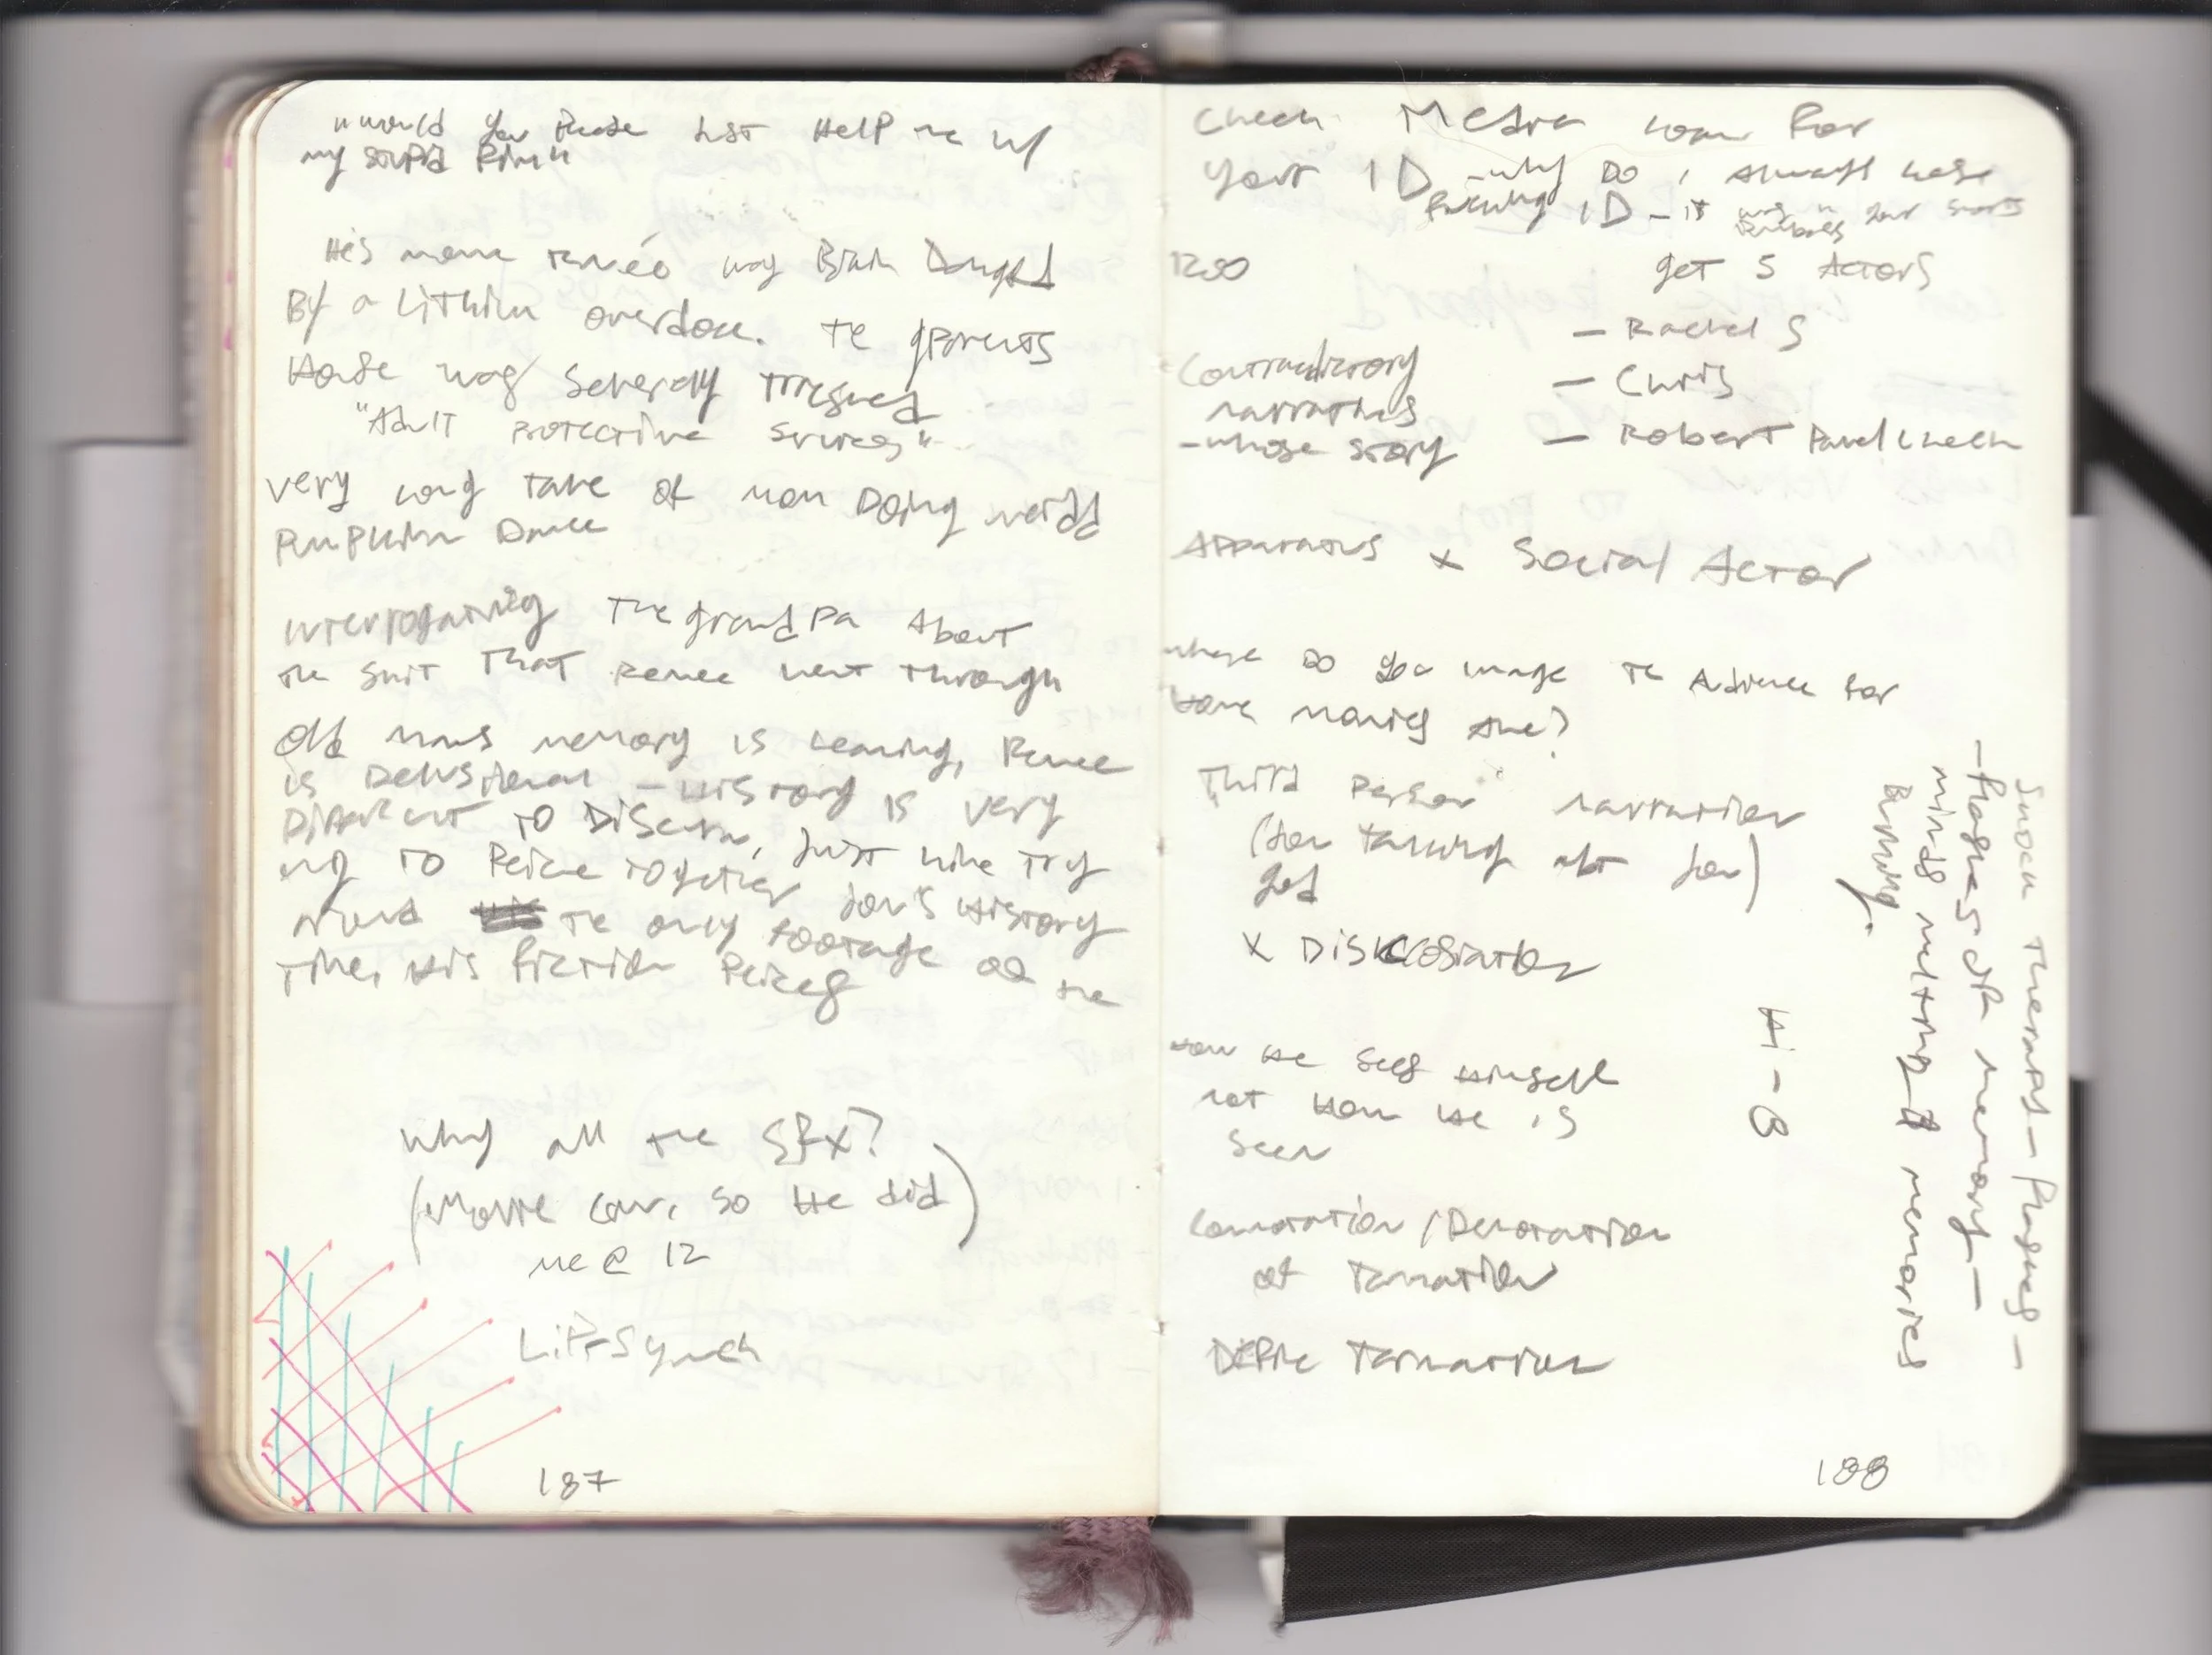 "would you please just Help me w/
my stupid Film"
He's mom Renée was Brain Damged
By a Lithium overdose. Te gparents
House was severely Trashed
"Adult Protective Services"
very long take of mom Doing weird
Pumpkin Dance
interrogating The grandpa About
the shit That Renee went through
Old mans memory is leaving, Renee
is Delusional - History is very
Difficult to Discern, Just like Try
ing to Peice Together Jon's History
te only footage of the
Time, His fiction Peices
why all the SFX?
(iMovie can, so He did)
me @ 12
Lip-Synch
187
Check Media loan for
your ID - why Do I Always lose
Fucking ID - it was in your
1230
get 5 Actors
- Rachel S
- Chris
- Robert Pavel check
Contradictory
narratives
- whose story
Apparatus x Social Actor
where Do you image the Audience for
Home movies Are?
Third Person narration
(Jon talking abt Jon)
x Dis
How He sees Himself
not How He is
seen
A - B
Connotation / Denotation
of Tarnation
Define Tarnation
Shock Therapy - Plagues -
- Plagues of memory -
minds melting - memories
Burning.
188